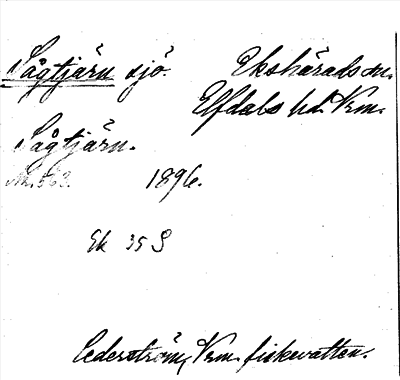 Sågtjärn sjö. Ekshärads sn.
Elfdals hd. Vrm.
Sågtjärn.
1896.
Ek 35 S
Cederström, Vrm. fiskevatten.